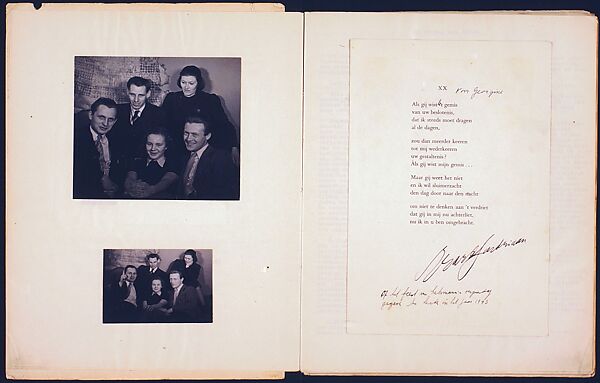 XX
voor Georgine
Als gij wist 't gemis
van uw beslotenis,
dat ik steeds moet dragen
al de dagen,
zou dan meerder keeren
tot mij wederkeeren
uw gestaltenis?
Als gij wist mijn gemis . . .
Maar gij weet het niet
en ik wil sluimerzacht
den dag door naar den nacht
om niet te denken aan 't verdriet
dat gij in mij nu achterliet,
nu ik in u ben omgebracht.
Op het feest
in het jaar 1943